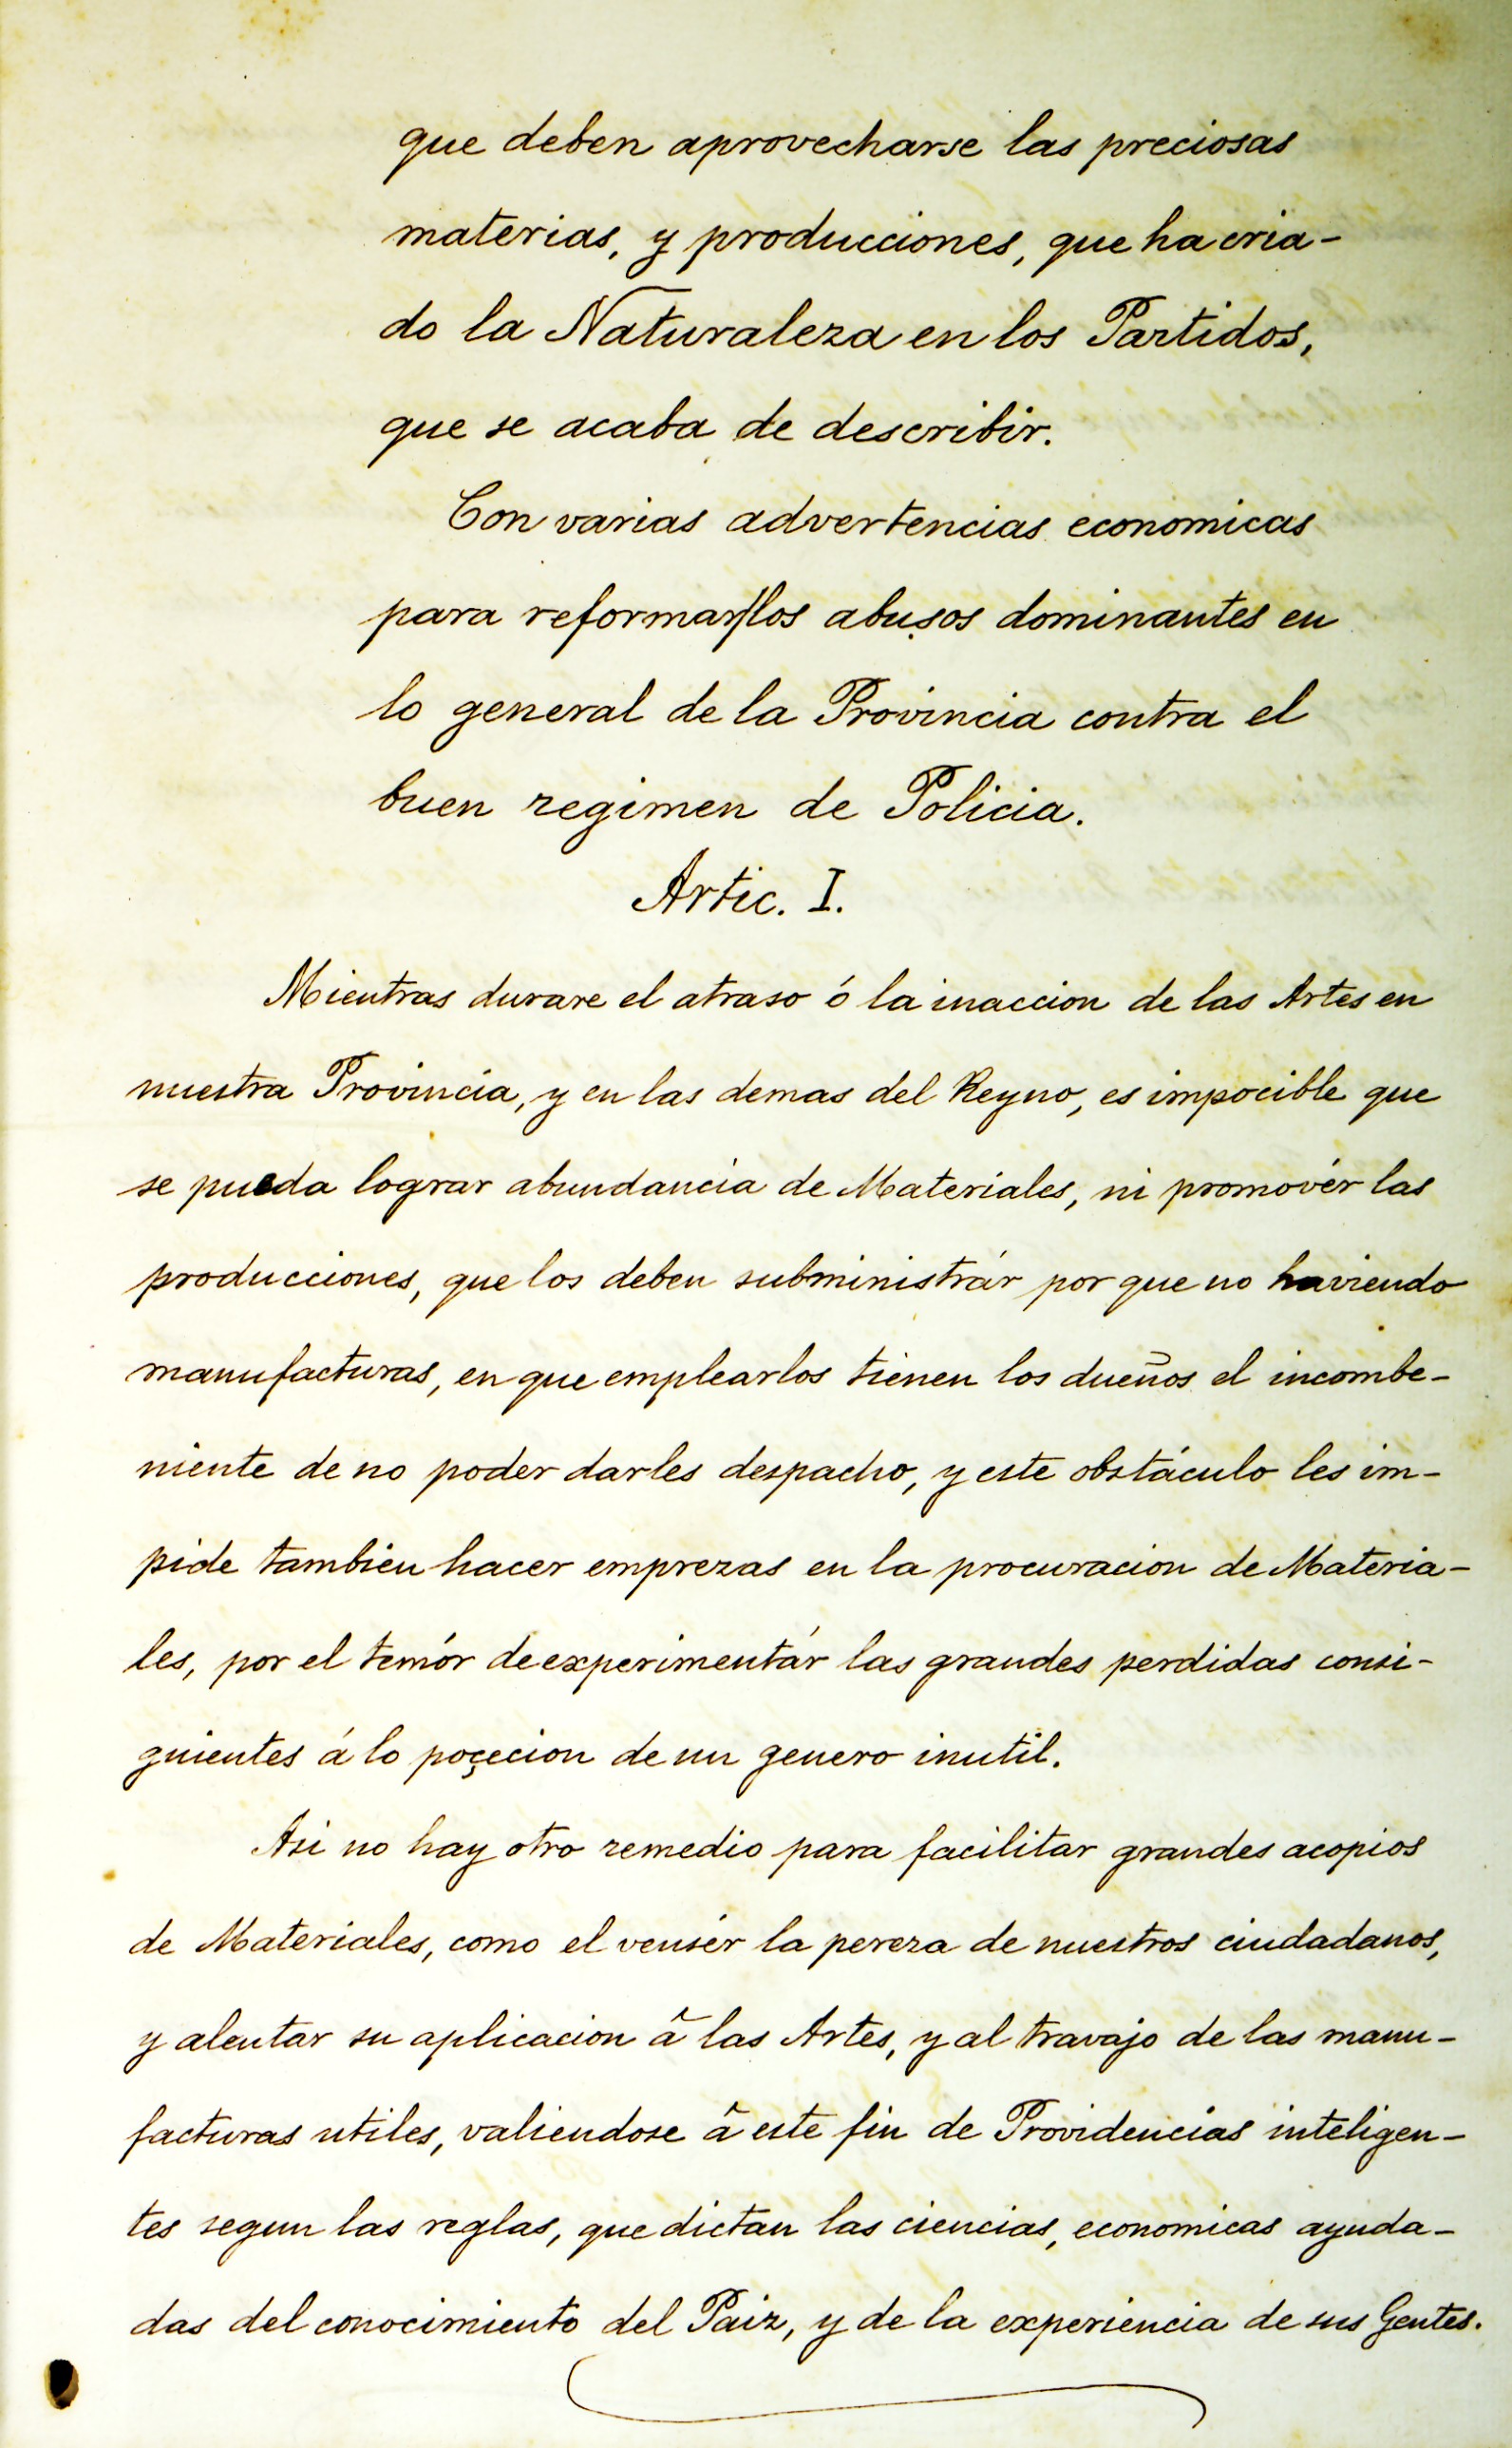 que deben aprovecharse las preciosas
materias, y producciones, que ha cria-
do la Naturaleza en los Partidos,
que se acaba de describir.
Con varias advertencias economicas
para reformar los abusos dominantes en
lo general de la Provincia contra el
buen regimen de Policia.
Artic. I.
Mientras durare el atraso ó la inaccion de las Artes en
nuestra Provincia, y en las demas del Reyno, es impocible que
se pueda lograr abundancia de Materiales, ni promovér las
producciones, que los deben subministrár por que no haviendo
manufacturas, en que emplearlos tienen los dueños el incombe-
niente de no poder darles despacho, y este obstáculo les im-
pide tambien hacer emprezas en la procuracion de Materia-
les, por el temór de experimentár las grandes perdidas consi-
guientes á lo poçecion de un genero inutil.
Asi no hay otro remedio para facilitar grandes acopios
de Materiales, como el vensér la pereza de nuestros ciudadanos,
y alentar su aplicacion â las Artes, y al travajo de las manu-
facturas utiles, valiendose â este fin de Providencias inteligen-
tes segun las reglas, que dictan las ciencias, economicas ayuda-
das del conocimiento del Paiz, y de la experiencia de sus Gentes.